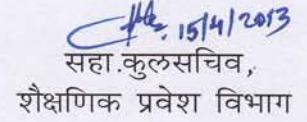 15/4/2013
सहा.कुलसचिव,
शैक्षणिक प्रवेश विभाग